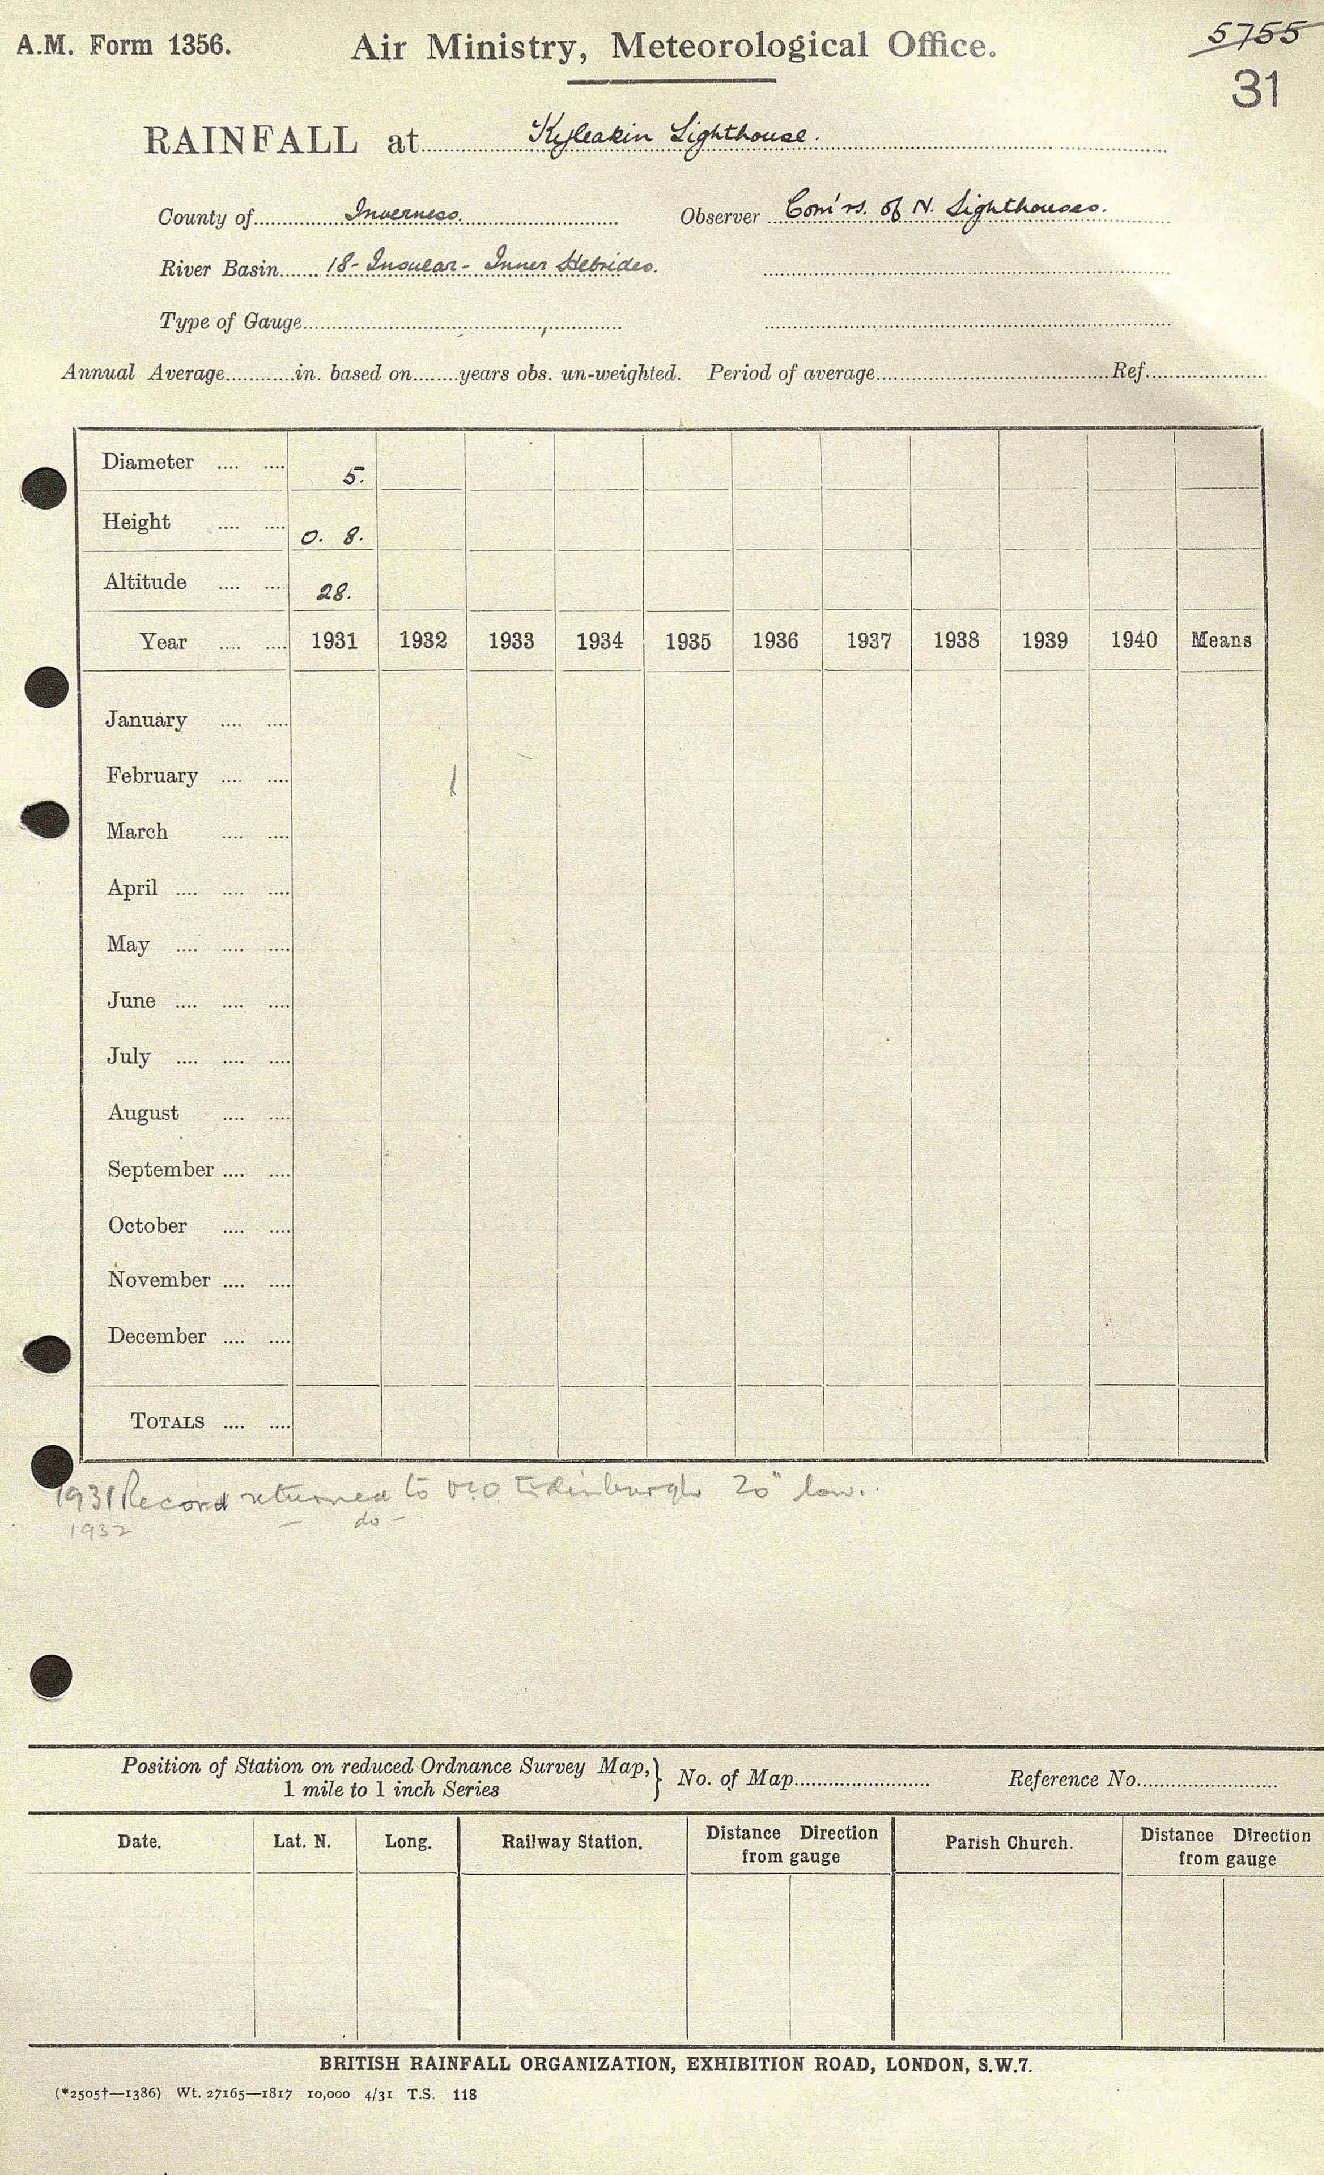 A.M. Form 1356.
Air Ministry, Meteorological Office.
5755
31
RAINFALL at Kyleakin Lighthouse.
County of Inverness. Observer Com'rs. of N. Lighthouses.
River Basin 18 - Insular - Inner Hebrides.
Type of Gauge
Annual Average in. based on years obs. un-weighted. Period of average Ref.
Diameter .... .... 5.
Height .... .... 0. 8.
Altitude .... .... 28.
Year .... .... 1931 1932 1933 1934 1935 1936 1937 1938 1939 1940 Means
January .... ....
February .... ....
March .... ....
April .... .... ....
May .... .... ....
June .... .... ....
July .... .... ....
August .... ....
September .... ....
October .... ....
November .... ....
December .... ....
TOTALS .... ....
1931 Record returned to M.O. Edinburgh 20" low.
1932 - do -
Position of Station on reduced Ordnance Survey Map, } No. of Map Reference No.
1 mile to 1 inch Series
Date. Lat. N. Long. Railway Station. Distance Direction from gauge Parish Church. Distance Direction from gauge
BRITISH RAINFALL ORGANIZATION, EXHIBITION ROAD, LONDON, S.W.7.
(*2505†—1386) Wt. 27165—1817 10,000 4/31 T.S. 118